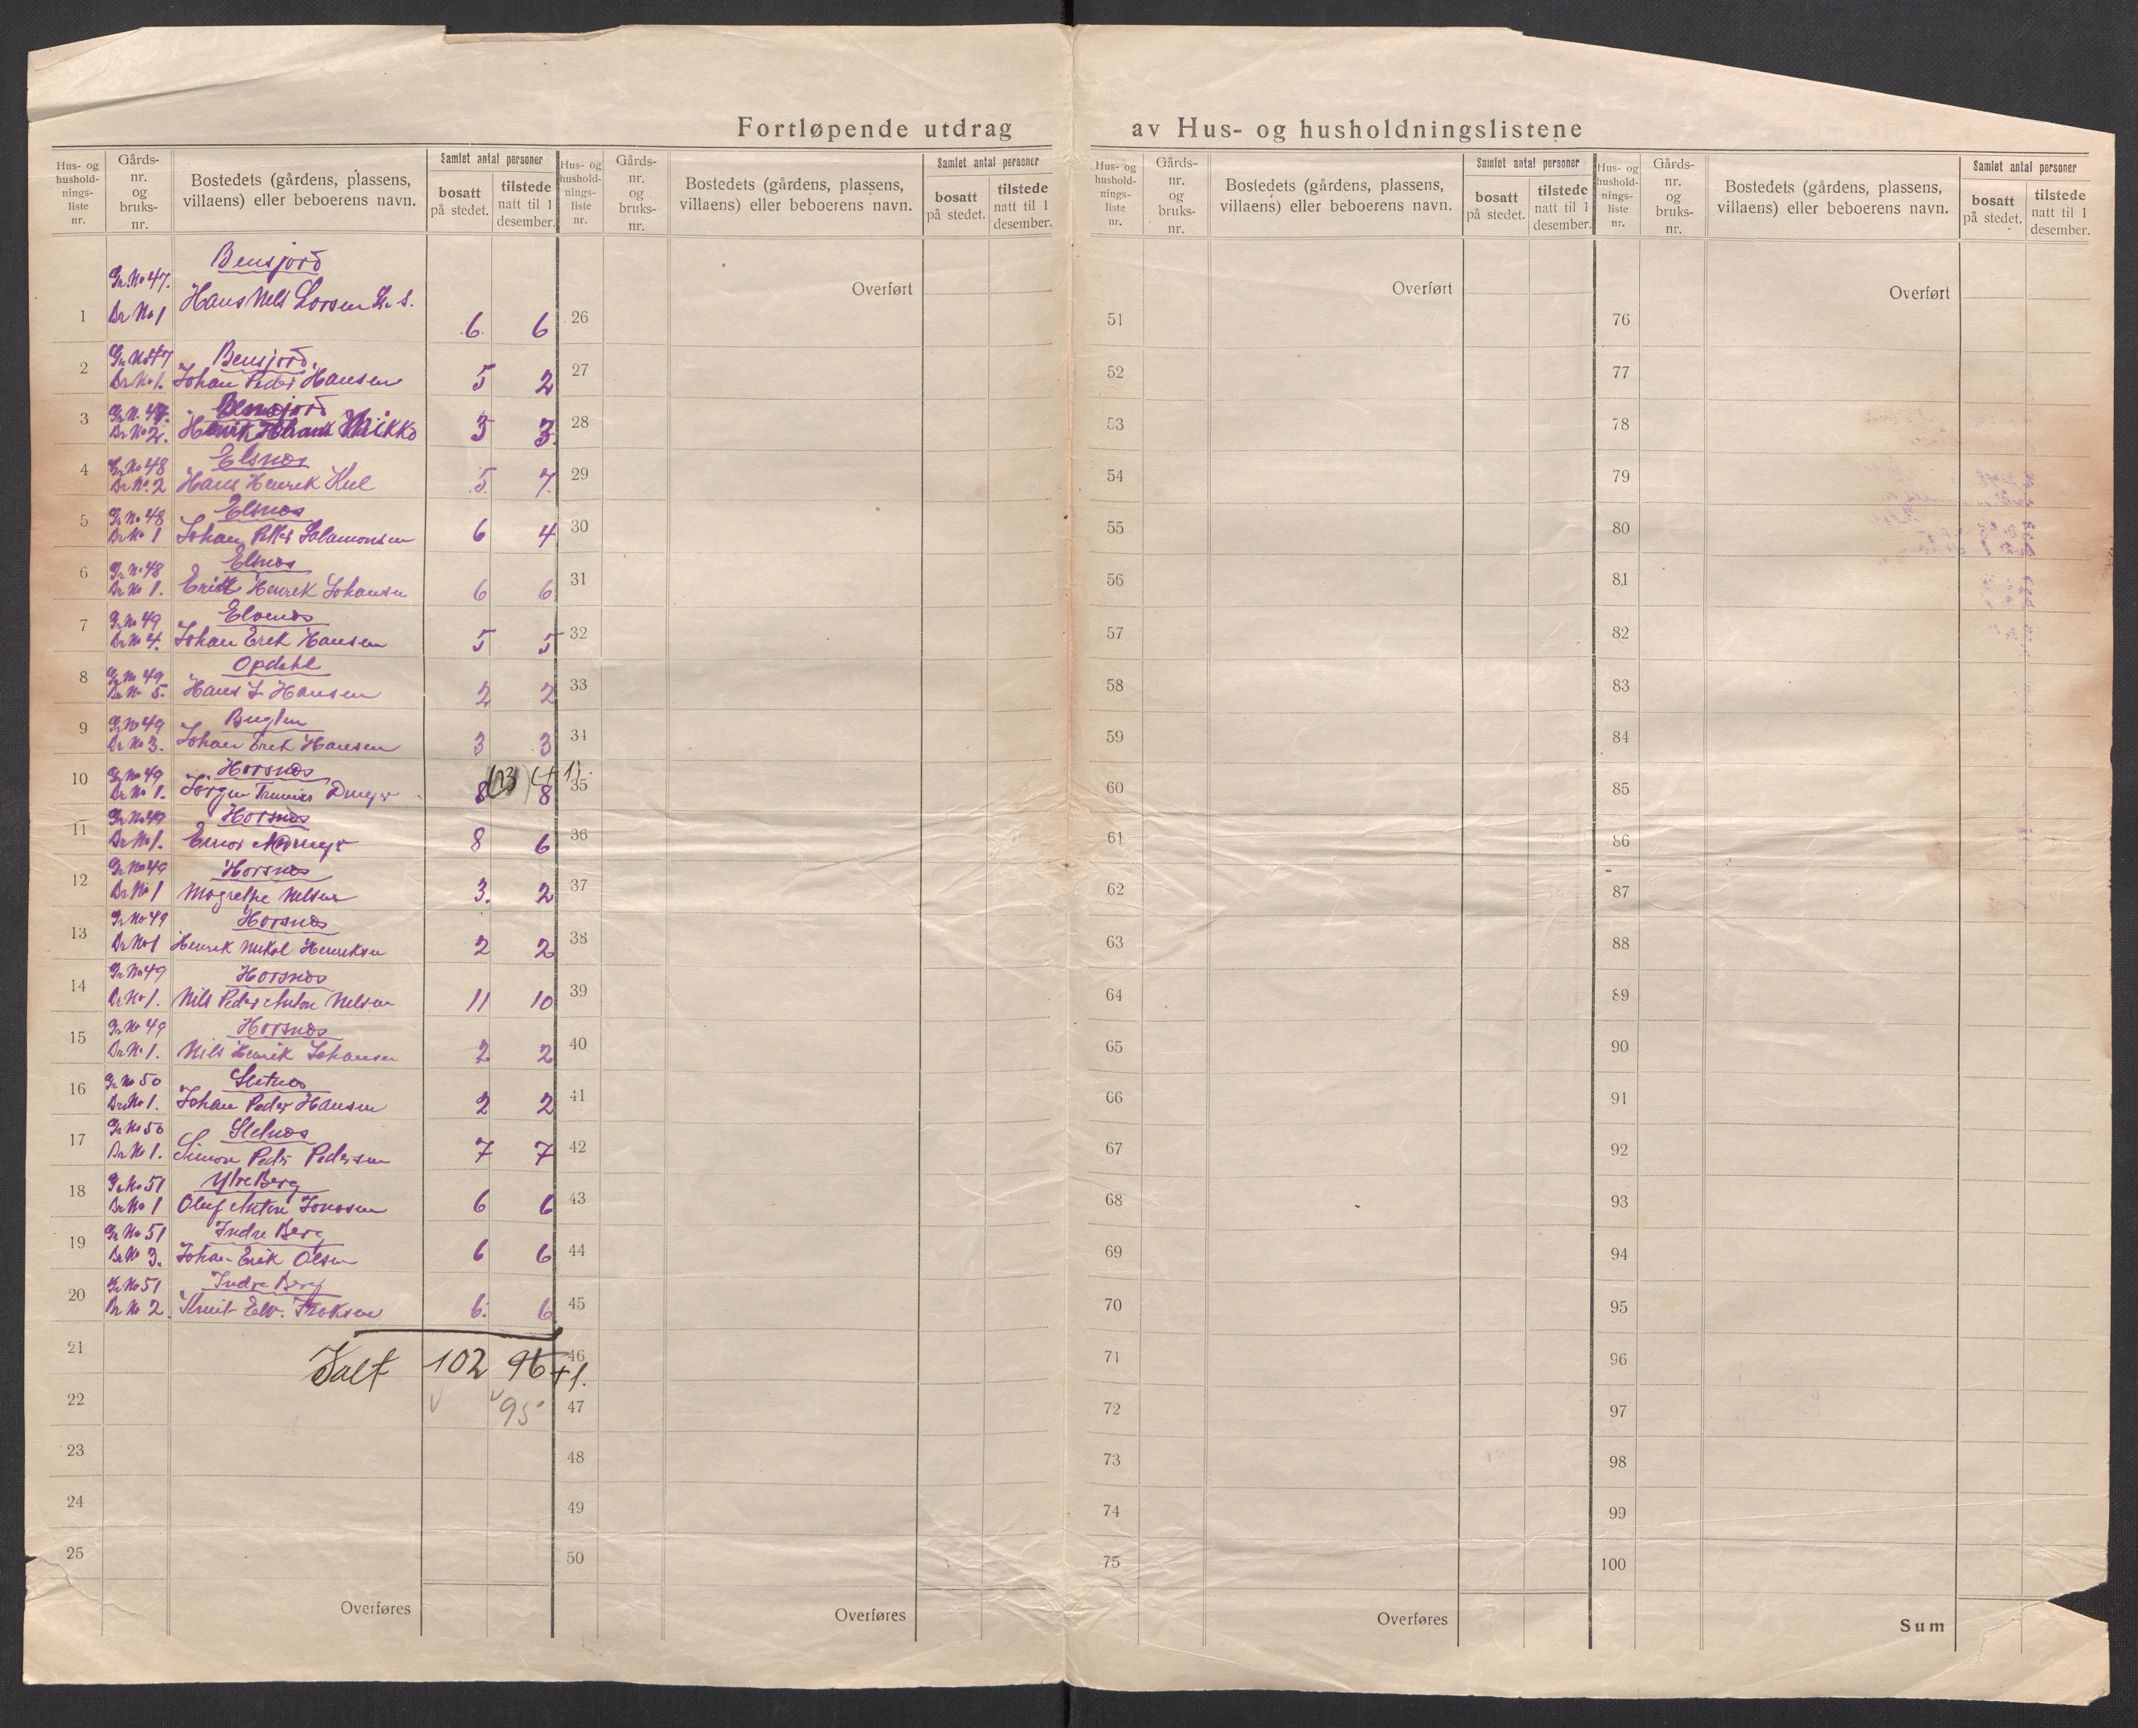 Fortløpende utdrag av Hus- og husholdningslistene
Hus- og husholdningsliste nr.
Gårds-nr. og bruks-nr.
Bostedets (gårdens, plassens, villaens) eller beboerens navn.
Samlet antal personer
bosatt på stedet.
tilstede natt til 1 desember.
Bensjord
Gr. No 47.
Hans Nils Larsen
1 Br No 1 6 6
Gr No 47 Bensjord
2 Br No 1. Johan Peder Hansen 5 2
Gr N. 47. Bensjord
3 Br No 2. Henrik Mikko 3 3
Gr No 48 Elsnes
4 Br No. 2 Hans Henrik 5 7
Gr No 48 Elsnes
5 Br No 1 Johan Peder Salamonsen 6 4
Gr No 48 Elsnes
6 Br No 1. Erik Henrik Johansen 6 6
Gr No 49 Elvenes
7 Br No 4. Johan Erik Hansen 5 5
Gr No 49 Opdahl
8 Br No 5. Hans J. Hansen 2 2
Gr No 49
9 Br No 3. Johan Erik Hansen 3 3
Gr No 49 Horsnes (+1).
10 Br No 1. Jørgen 8 8
Gr No 49 Horsnes
11 Br No 1. 8 6
Gr No 49 Horsnes
12 Br No 1 Magrethe Nelsen 3. 2
Gr No 49 Horsnes
13 Br No 1 Henrik Nikol Henriksen 2 2
Gr No 49 Horsnes
14 Br No 1. Nils Peder Anton Nelsen 11 10
Gr No 49 Horsnes
15 Br No 1. Nils Henrik Johansen 2 2
Gr No 50 Sletnes
16 Br No 1. Johan Peder Hansen 2 2
Gr No 50 Sletnes
17 Br No 1. Simon Peder Pedersen 7 7
Gr No 51 Ytre Berg
18 Br No 1 Oluf Anton Jonasen 6 6
Gr No 51 Indre Berg
19 Br No 3. Johan Erik Olsen 6 6
Gr No 51 Indre Berg
20 Br No 2. Knut Edv. 6. 6
21 Ialt 102 96 +1.
22 95
23
24
25
Overføres
Hus- og husholdningsliste nr.
Gårds-nr. og bruks-nr.
Bostedets (gårdens, plassens, villaens) eller beboerens navn.
Samlet antal personer
bosatt på stedet.
tilstede natt til 1 desember.
Overført
26
27
28
29
30
31
32
33
34
35
36
37
38
39
40
41
42
43
44
45
46
47
48
49
50
Overføres
Hus- og husholdningsliste nr.
Gårds-nr. og bruks-nr.
Bostedets (gårdens, plassens, villaens) eller beboerens navn.
Samlet antal personer
bosatt på stedet.
tilstede natt til 1 desember.
Overført
51
52
53
54
55
56
57
58
59
60
61
62
63
64
65
66
67
68
69
70
71
72
73
74
75
Overføres
Hus- og husholdningsliste nr.
Gårds-nr. og bruks-nr.
Bostedets (gårdens, plassens, villaens) eller beboerens navn.
Samlet antal personer
bosatt på stedet.
tilstede natt til 1 desember.
Overført
76
77
78
79
80
81
82
83
84
85
86
87
88
89
90
91
92
93
94
95
96
97
98
99
100
Sum